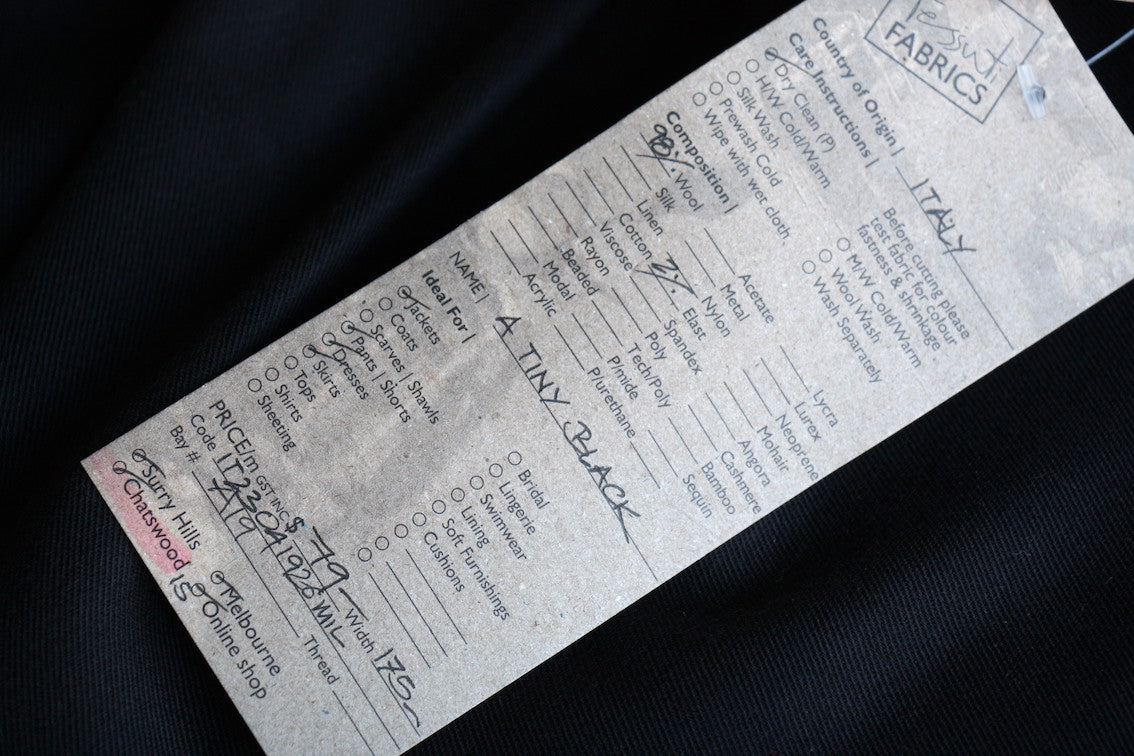 Tessuti
FABRICS
Country of Origin | ITALY
Care Instructions |
Dry Clean (P)
H/W Cold/Warm
Silk Wash
Prewash Cold
Wipe with wet cloth.
Before cutting please
test fabric for colour
fastness & shrinkage
M/W Cold/Warm
Wool Wash
Wash Separately
Composition |
98% Wool
Silk
Linen
Cotton
Viscose
Rayon
Beaded
Modal
Acrylic
Acetate
Metal
Nylon
2% Elast
Spandex
Poly
Tech/Poly
P/mide
P/urethane
Lycra
Lurex
Neoprene
Mohair
Angora
Cashmere
Bamboo
Sequin
NAME | A TINY BLACK
Ideal For |
Jackets
Coats
Scarves | Shawls
Pants | Shorts
Dresses
Skirts
Tops
Shirts
Sheeting
Bridal
Lingerie
Swimwear
Lining
Soft Furnishings
Cushions
PRICE/m GST INC $79- Width 175
Code IT23041928MIL
Bay # A19 Thread
Surry Hills
Chatswood 15
Melbourne
Online shop